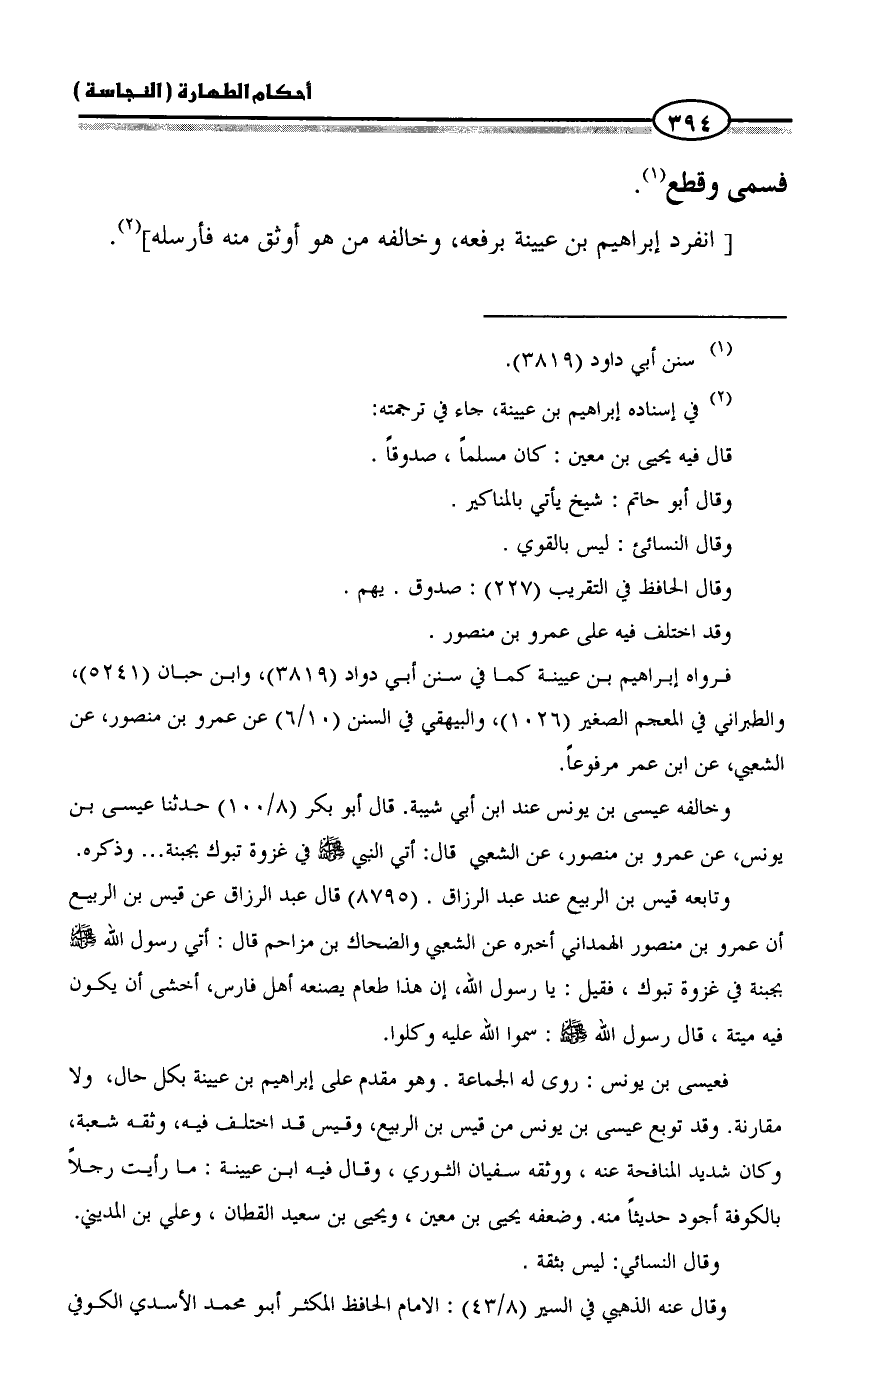 أحكام الطهارة (النجاسة)
٣٩٤
فسمى وقطع(١).
[ انفرد إبراهيم بن عيينة برفعه، وخالفه من هو أوثق منه فأرسله](٢).
(١) سنن أبي داود (٣٨١٩).
(٢) في إسناده إبراهيم بن عيينة، جاء في ترجمته:
قال فيه يحيى بن معين : كان مسلماً ، صدوقاً .
وقال أبو حاتم : شيخ يأتي بالمناكير .
وقال النسائي : ليس بالقوي .
وقال الحافظ في التقريب (٢٢٧) : صدوق . يهم .
وقد اختلف فيه على عمرو بن منصور .
فرواه إبراهيم بن عيينة كما في سنن أبي دواد (٣٨١٩)، وابن حبان (٥٢٤١)،
والطبراني في المعجم الصغير (١٠٢٦)، والبيهقي في السنن (٦/١٠) عن عمرو بن منصور، عن
الشعبي، عن ابن عمر مرفوعاً.
وخالفه عيسى بن يونس عند ابن أبي شيبة. قال أبو بكر (١٠٠/٨) حدثنا عيسى بن
يونس، عن عمرو بن منصور، عن الشعبي قال: أتي النبي ﷺ في غزوة تبوك بجبنة... وذكره.
وتابعه قيس بن الربيع عند عبد الرزاق . (٨٧٩٥) قال عبد الرزاق عن قيس بن الربيع
أن عمرو بن منصور الهمداني أخبره عن الشعبي والضحاك بن مزاحم قال : أتي رسول الله ﷺ
بجبنة في غزوة تبوك ، فقيل : يا رسول الله، إن هذا طعام يصنعه أهل فارس، أخشى أن يكون
فيه ميتة ، قال رسول الله ﷺ : سموا الله عليه وكلوا.
فعيسى بن يونس : روى له الجماعة . وهو مقدم على إبراهيم بن عيينة بكل حال، ولا
مقارنة. وقد توبع عيسى بن يونس من قيس بن الربيع، وقيس قد اختلف فيه، وثقه شعبة،
وكان شديد المنافحة عنه ، ووثقه سفيان الثوري ، وقال فيه ابن عيينة : ما رأيت رجلاً
بالكوفة أجود حديثاً منه. وضعفه يحيى بن معين ، ويحيى بن سعيد القطان ، وعلي بن المديني.
وقال النسائي: ليس بثقة .
وقال عنه الذهبي في السير (٤٣/٨) : الامام الحافظ المكثر أبو محمد الأسدي الكوفي